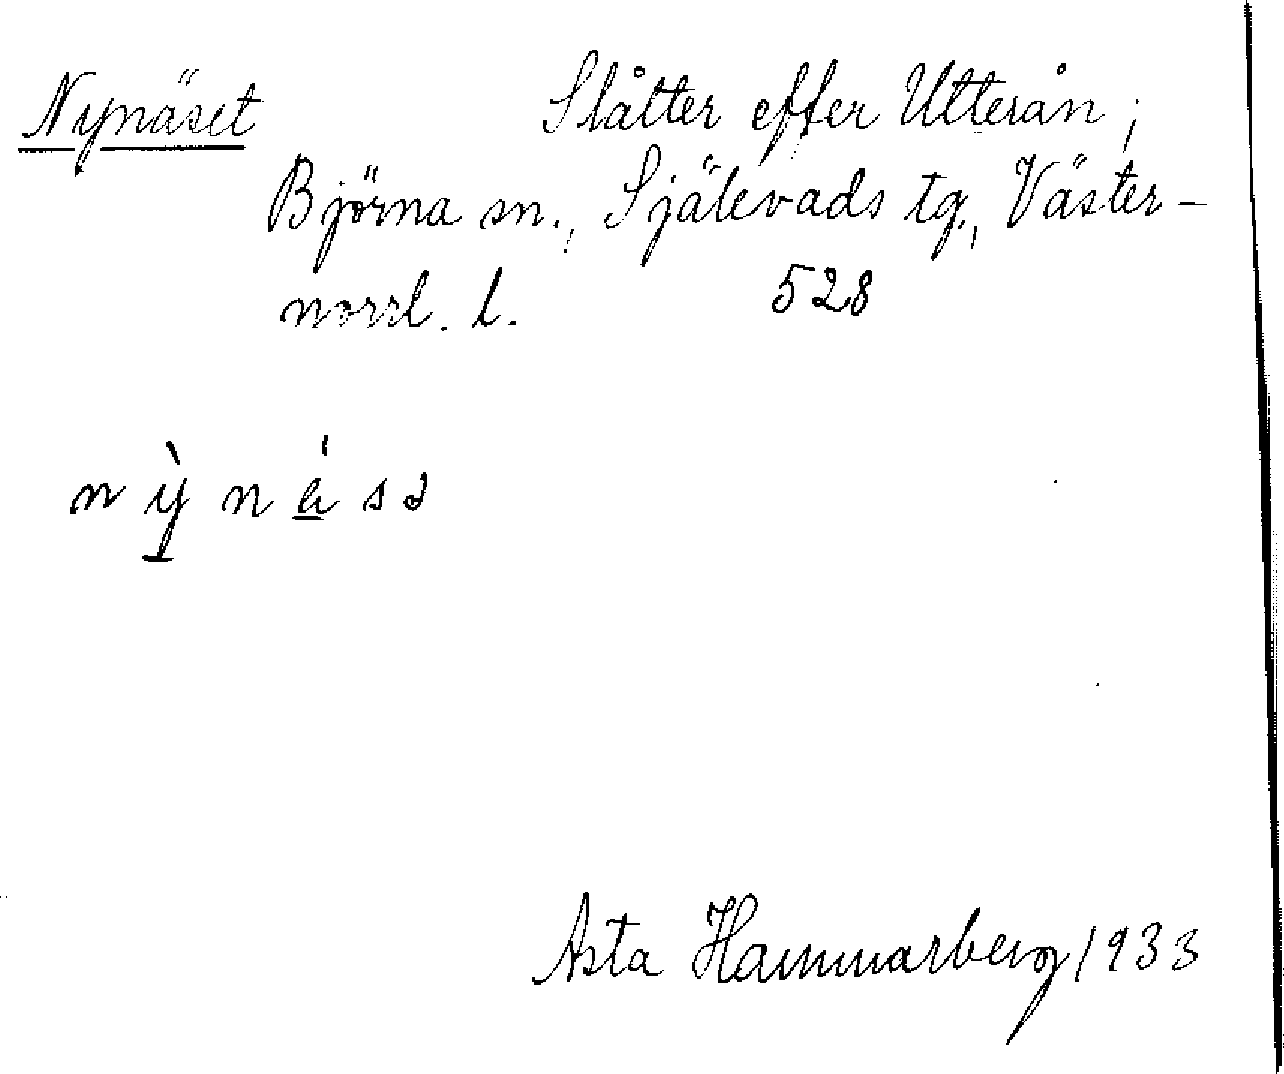 Nynäset Slåtter efter Utterån;
Björna sn., Själevads tg., Väster-
norrl. l. 528
nỳnä́sə
Asta Hammarberg 1933